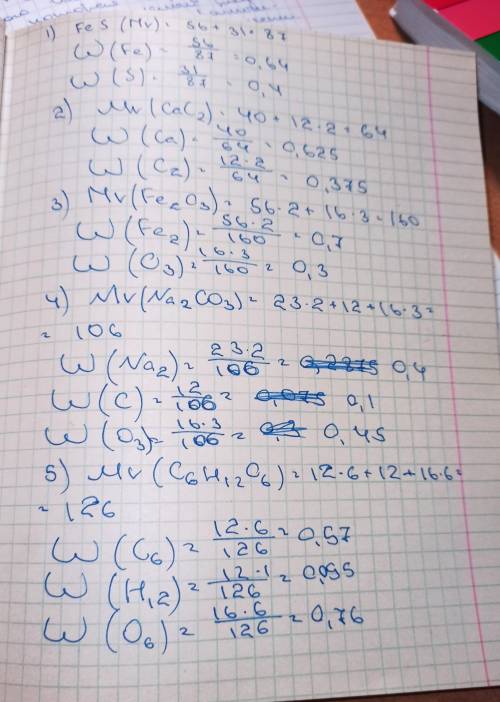 1) FeS (Mr) = 56 + 31 = 87
W (Fe) = 56/87 = 0,64
W (S) = 31/87 = 0,4
2) Mr (CaC₂) = 40 + 12·2 = 64
W (Ca) = 40/64 = 0,625
W (C₂) = 12·2/64 = 0,375
3) Mr (Fe₂O₃) = 56·2 + 16·3 = 160
W (Fe₂) = 56·2/160 = 0,7
W (O₃) = 16·3/160 = 0,3
4) Mr (Na₂CO₃) = 23·2 + 12 + 16·3 =
= 106
W (Na₂) = 23·2/106 = 0,4
W (C) = 12/106 = 0,1
W (O₃) = 16·3/106 = 0,45
5) Mr (C₆H₁₂O₆) = 12·6 + 12 + 16·6 =
= 126
W (C₆) = 12·6/126 = 0,57
W (H₁₂) = 12·1/126 = 0,095
W (O₆) = 16·6/126 = 0,76